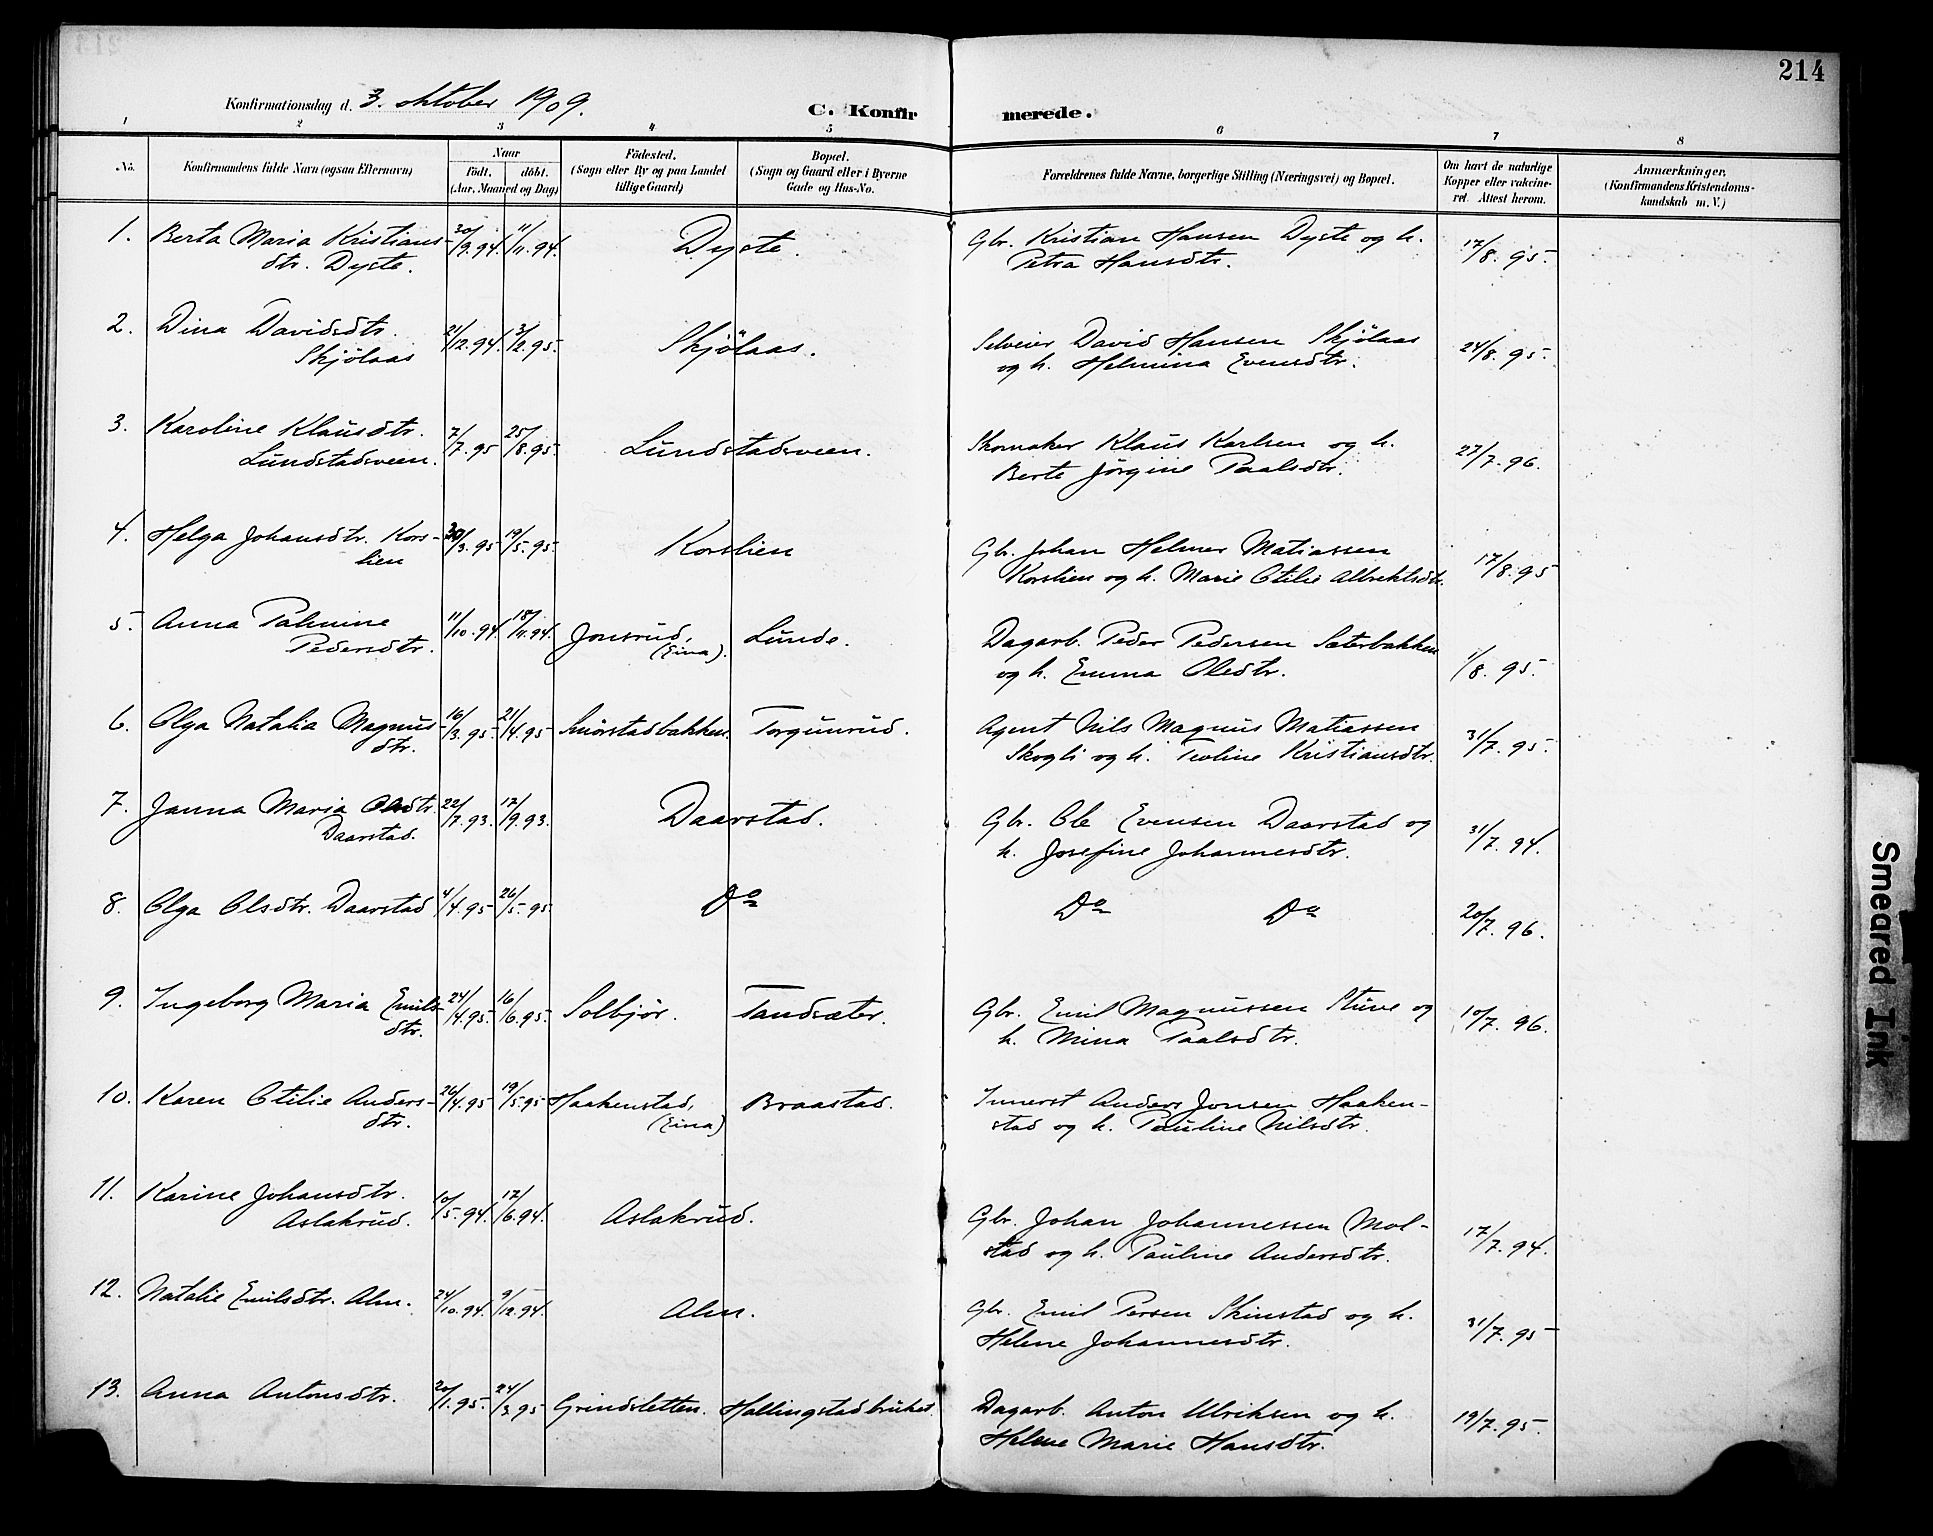 214
Konfirmationsdag d. 3. oktober 1909.
C. Konfirmerede.
1 2 3 4 5 6 7 8
No.
Konfirmandens fulde Navn (ogsaa Efternavn)
Naar
Födt. döbt.
(Aar, Maaned og Dag)
Födested.
(Sogn eller By og paa Landet
tillige Gaard)
Bopæl.
(Sogn og Gaard eller i Byerne
Gade og Hus-No.
Forældrenes fulde Navne, borgerlige Stilling (Næringsvei) og Bopæl.
Om havt de naturlige
Kopper eller vakcine-
ret. Attest herom.
Anmærkninger.
(Konfirmandens Kristendoms-
kundskab m. V.)
1. Berta Maria Kristians- 20/9.94. 11/11.94. Dyste. Gbr. Kristian Hansen Dyste og h. 17/8. 95.
dtr. Dyste. Petra Hansdtr.
2. Dina Davidsdtr. 21/12.94. 3/2.95. Skjölaas. Selveier David Hansen Skjölaas 24/8. 95.
Skjölaas og h. Helmina Evensdtr.
3. Karoline Klausdtr. 7/7.95 25/8.95. Lundstadsveen. Skomaker Klaus Karlsen og h. 27/7.96.
Lundstadsveen. Berte Jørgine Paalsdtr.
4. Helga Johansdtr. Kors- 30/3.95 19/5.95. Korslien Gbr. Johan Helmer Matiassen 17/8.95
lien Korslien og h. Marie Otilie Albrektsdtr.
5. Anna Palmine 11/10.94. 18/11.94. Jonsrud, (Eina). Lunde. Dagarb. Peder Pedersen Sæterbakken 1/8. 95.
Pedersdtr. og h. Emma Olesdtr.
6. Olga Natalia Magnus- 16/3.95. 21/4.95 Smørstadbakken. Torgunrud. Agent Nils Magnus Matiassen 31/7. 95.
dtr. Skogli og h. Teoline Kristiansdtr.
7. Janna Maria Olsdtr. 22/7.93. 17/9.93. Daarstad. Gbr. Ole Evensen Daarstad og 31/7. 94.
Daarstad. h. Josefine Johannesdtr.
8. Olga Olsdtr. Daarstad 4/4.95 26/5.95. Do Do Do 20/7. 96.
9. Ingeborg Maria Emils- 24/4.95. 16/6.95. Solbjør. Tandsæter. Gbr. Emil Magnussen Stuve og 10/7. 96.
dtr. h. Mina Paalsdtr.
10. Karen Otilie Anders- 26/4.95 19/5.95 Haakenstad, (Eina) Braastad. Innerst Anders Jonsen Haaken-
dtr. stad og h. Pauline Nilsdtr.
11. Karine Johansdtr. 10/5.94. 17/6.94. Aslakrud. Gbr. Johan Johannessen Mol- 17/7. 94.
Aslakrud. stad og h. Pauline Andersdtr.
12. Natalie Emilsdtr. Alm. 24/10.94. 9/12.94. Alm. Gbr. Emil Persen Skinstad og h. 31/7. 95
Helene Johannesdtr.
13. Anna Antonsdtr. 20/1.95. 24/3.95 Grindsletten. Hallingstadbruket. Dagarb. Anton Ulriksen og h. 19/7. 95.
Helene Marie Hansdtr.
Smeared Ink